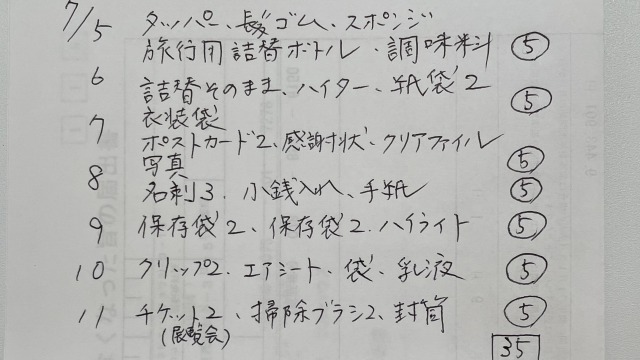 7/5 タッパー、髪ゴム、スポンジ
旅行用詰替ボトル、調味料 ⑤
6 詰替そのまま、ハイター、紙袋2
衣装袋 ⑤
7 ポストカード2、感謝状、クリアファイル
写真 ⑤
8 名刺3、小銭入れ、手紙 ⑤
9 保存袋2、保存袋2、ハイライト ⑤
10 クリップ2、エアシート、袋、乳液 ⑤
11 チケット2、掃除ブラシ2、封筒 ⑤
(展覧会)
35